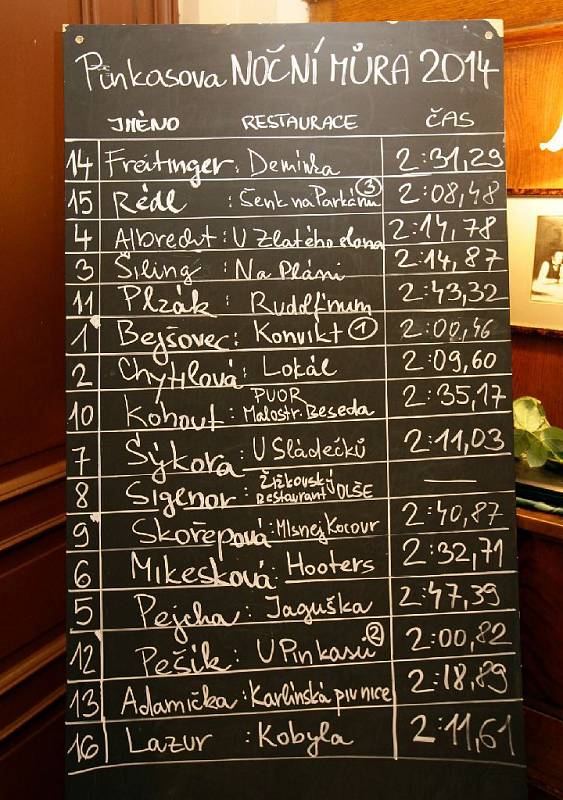 Pinkasova NOČNÍ MŮRA 2014
JMÉNO RESTAURACE ČAS
14 Freitinger : Demínka 2:31,29
15 Rédl : Šenk na Parkánu ③ 2:08,48
4 Albrecht : U Zlatého slona 2:14,78
3 Šiling : Na Pláni 2:14,87
11 Plzák : Rudolfinum 2:43,32
1 Bejšovec : Konvikt ① 2:00,46
2 Chytilová : Lokál 2:09,60
10 Kohout : PUOR Malostr. Beseda 2:35,17
7 Sýkora : U Sládečků 2:11,03
8 Sigenor : Žižkovský Restaurant OLŠE —
9 Skořepová : Mlsnej Kocour 2:40,87
6 Mikesková : Hooters 2:32,71
5 Pejcha : Jaguška 2:47,39
12 Pešík : U Pinkasů ② 2:00,82
13 Adamička : Karlínská pivnice 2:18,89
16 Lazur : Kobyla 2:11,61